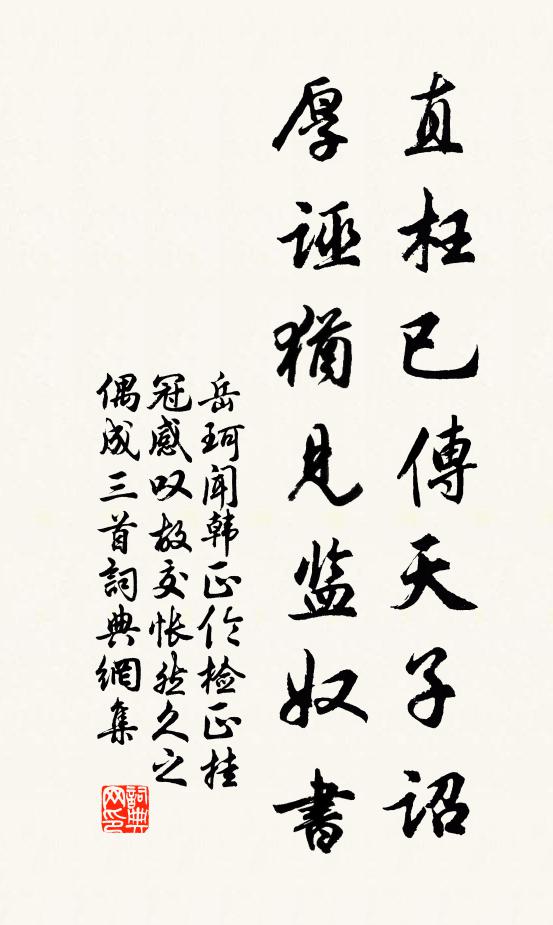 直枉已傳天子詔
厚誣猶見监奴書
岳珂闻韩正伦检正挂
冠感叹故交怅然久之
偶成三首詞典網集
詞典网印